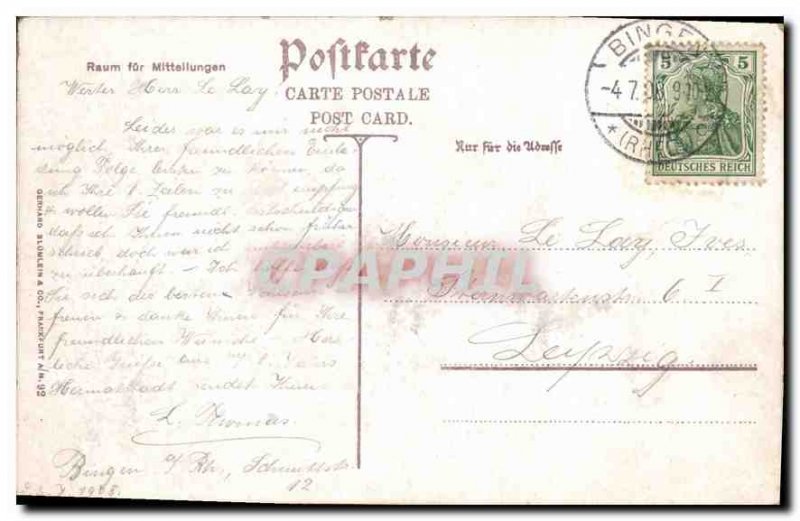 Postkarte
Raum für Mitteilungen
CARTE POSTALE
POST CARD.
Nur für die Adresse
BINGEN
-4.7.
9-10
* (RHEIN)
5 5
DEUTSCHES REICH
Werter Herr Le Lay,
Leider war es mir nicht
möglich, Ihrer freundlichen
Folge leisten zu können, da
ich Ihre l. Zeilen zu spät empfing
& wollen Sie freundl. entschuldigen
daß ich Ihnen nicht schon früher
schrieb, doch war ich
zu überhaupt - Ich hoffe
Sie sich die besten
freuen & danke Ihnen für Ihre
freundlichen Wünsche - Herz-
liche Grüße aus m. l.
Heimatstadt sendet Ihnen
L. Thomas
Bingen a/Rh., Schmittstr.
12
1908.
Monsieur Le Lay, Yves
6 I
Leipzig.
GERHARD BLÜMLEIN & CO., FRANKFURT A/M. 92
CPAPHIL